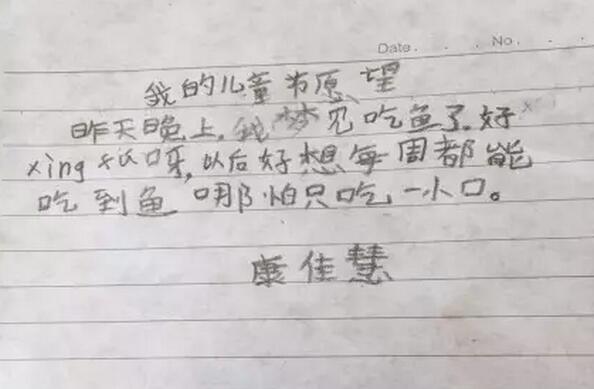 Date. . . No. .
我的儿童节愿望
昨天晚上,我梦见吃鱼了,好
xing fú呀,以后好想每周都能
吃到鱼 哪怕只吃一小口。
康佳慧